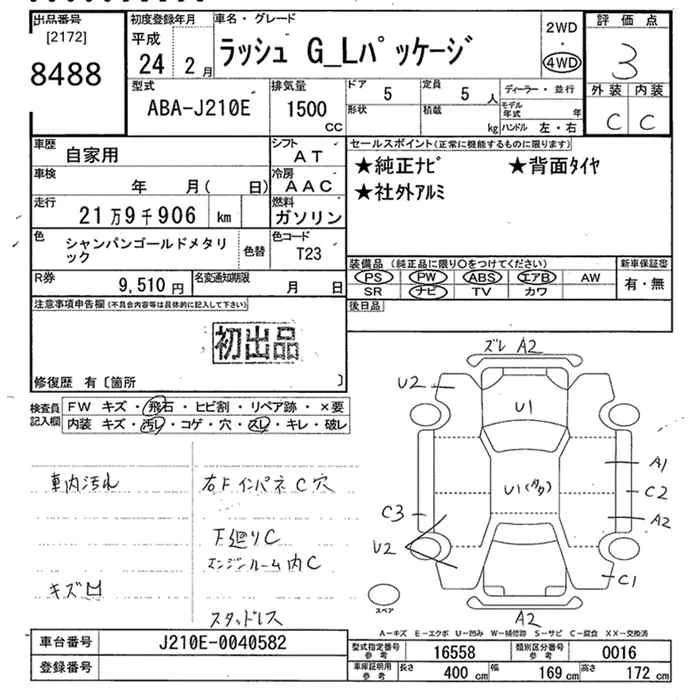 出品番号 初度登録年月 車名・グレード 2WD 評価点
[2172] 平成 ・
8488 24 2月 ラッシュ G_Lパッケージ 4WD 3
型式 排気量 ドア 5 定員 5人 ディーラー・並行 外装 内装
ABA-J210E 1500cc 形状 積載 kg モデル年式 年 C C
ハンドル 左・右
車歴 自家用 シフト AT セールスポイント(正常に機能するものに限ります)
車検 年 月( 日) 冷房 AAC ★純正ナビ ★背面タイヤ
走行 21万9千906 km 燃料 ガソリン ★社外アルミ
色 シャンパンゴールドメタリック 色替 色コード T23
装備品(純正品に限り○をつけてください) 新車保証書
R券 9,510円 名変通知期限 月 日 PS PW ABS エアB AW 有・無
SR ナビ TV カワ
注意事項申告欄(不具合内容等は具体的に記入して下さい) 後日品
初出品
修復歴 有〔箇所 〕
検査員記入欄 FW キズ・飛石・ヒビ割・リペア跡・×要
内装 キズ・汚レ・コゲ・穴・スレ・キレ・破レ
車内汚れ 右Fインパネ C 穴
下廻りC
エンジンルーム内C
キズ凹
スタッドレス
ズレ A2
U2
U1
A1
U1(多数)
C2
C3
A2
U2
C1
スペア
A2
A-キズ E-エクボ U-凹み W-補修跡 S-サビ C-腐食 XX-交換済
車台番号 J210E-0040582 型式指定番号 参考 16558 類別区分番号 参考 0016
登録番号 車庫証明用 参考 長さ 400cm 幅 169cm 高さ 172cm